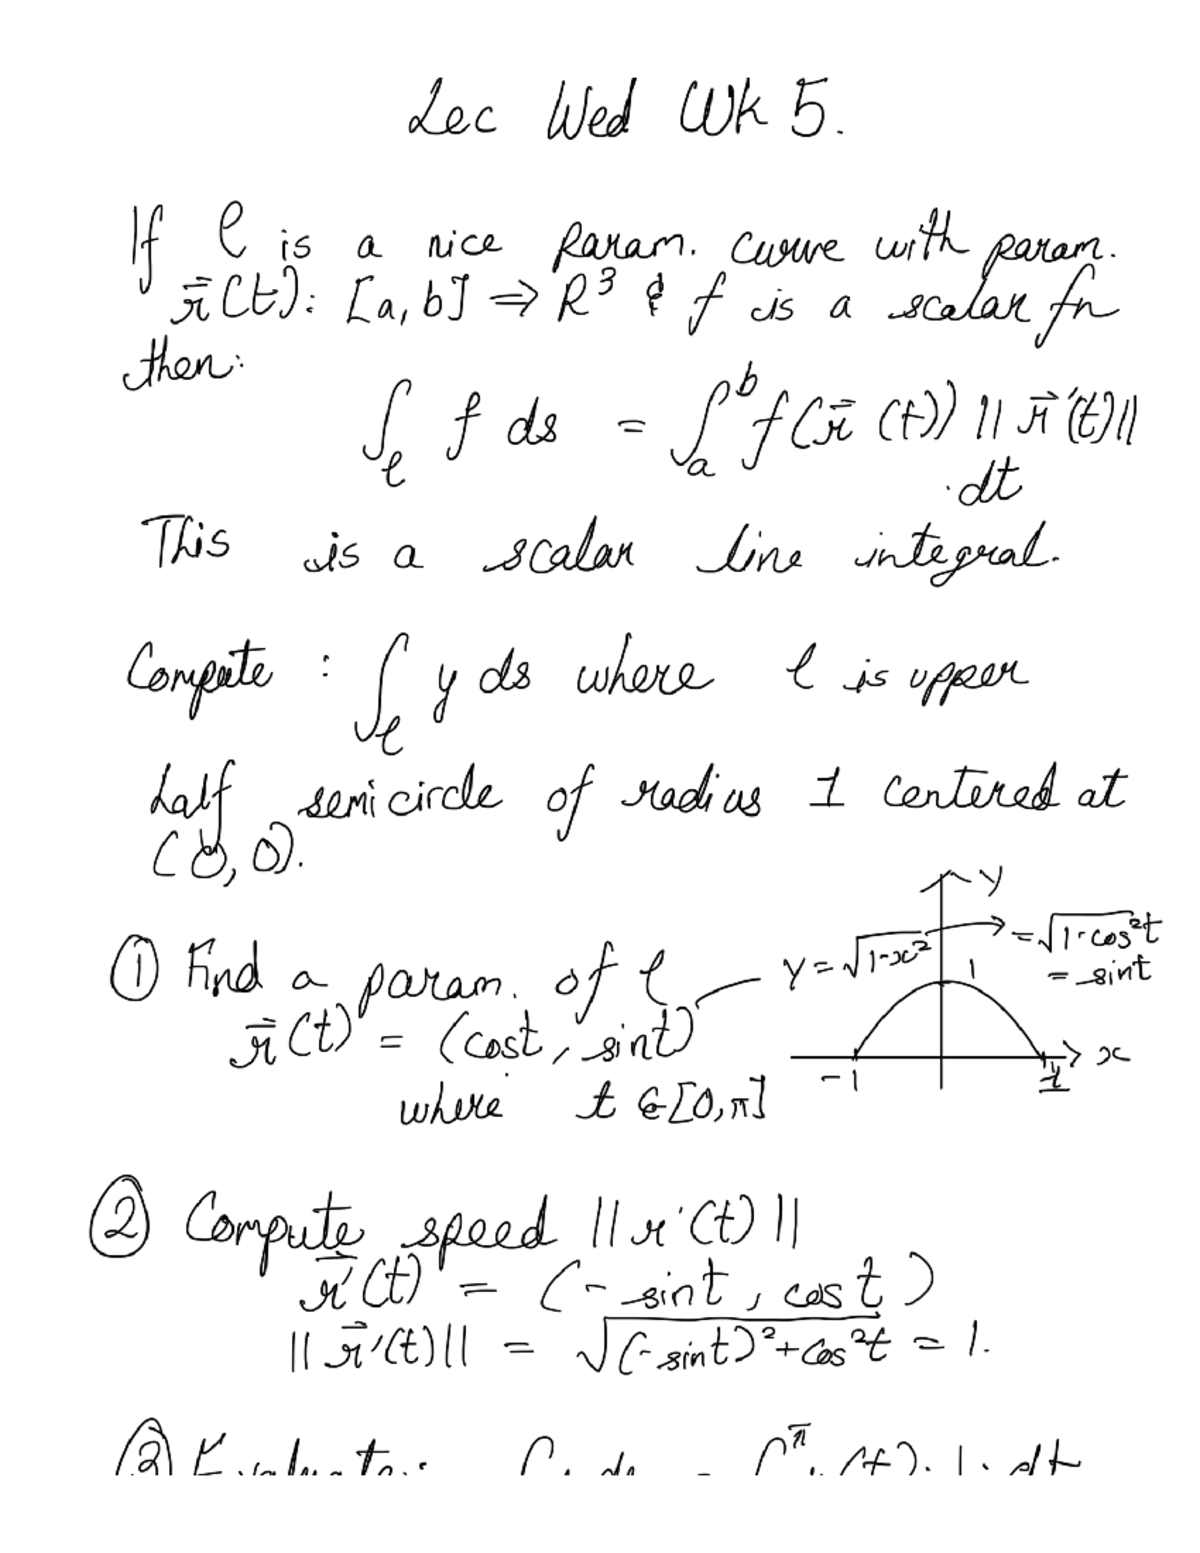 Lec Wed Wk 5.
If ℓ is a nice param. curve with param.
r⃗(t): [a, b] ⇒ R³ & f is a scalar fn
then:
∫_ℓ f ds = ∫_a^b f(r⃗(t)) ||r⃗'(t)||
·dt
This is a scalar line integral.
Compute : ∫_ℓ y ds where ℓ is upper
half semicircle of radius 1 centered at
(0, 0).
① Find a param. of ℓ
r⃗(t) = (cost, sint)
where t ∈ [0, π]
y
y = √(1-x²)
= √(1-cos²t
= sint
1
-1
1
x
② Compute speed ||r'(t)||
r⃗'(t) = (-sint, cost)
||r⃗'(t)|| = √((-sint)²+cos²t = 1.
③ Evaluate: